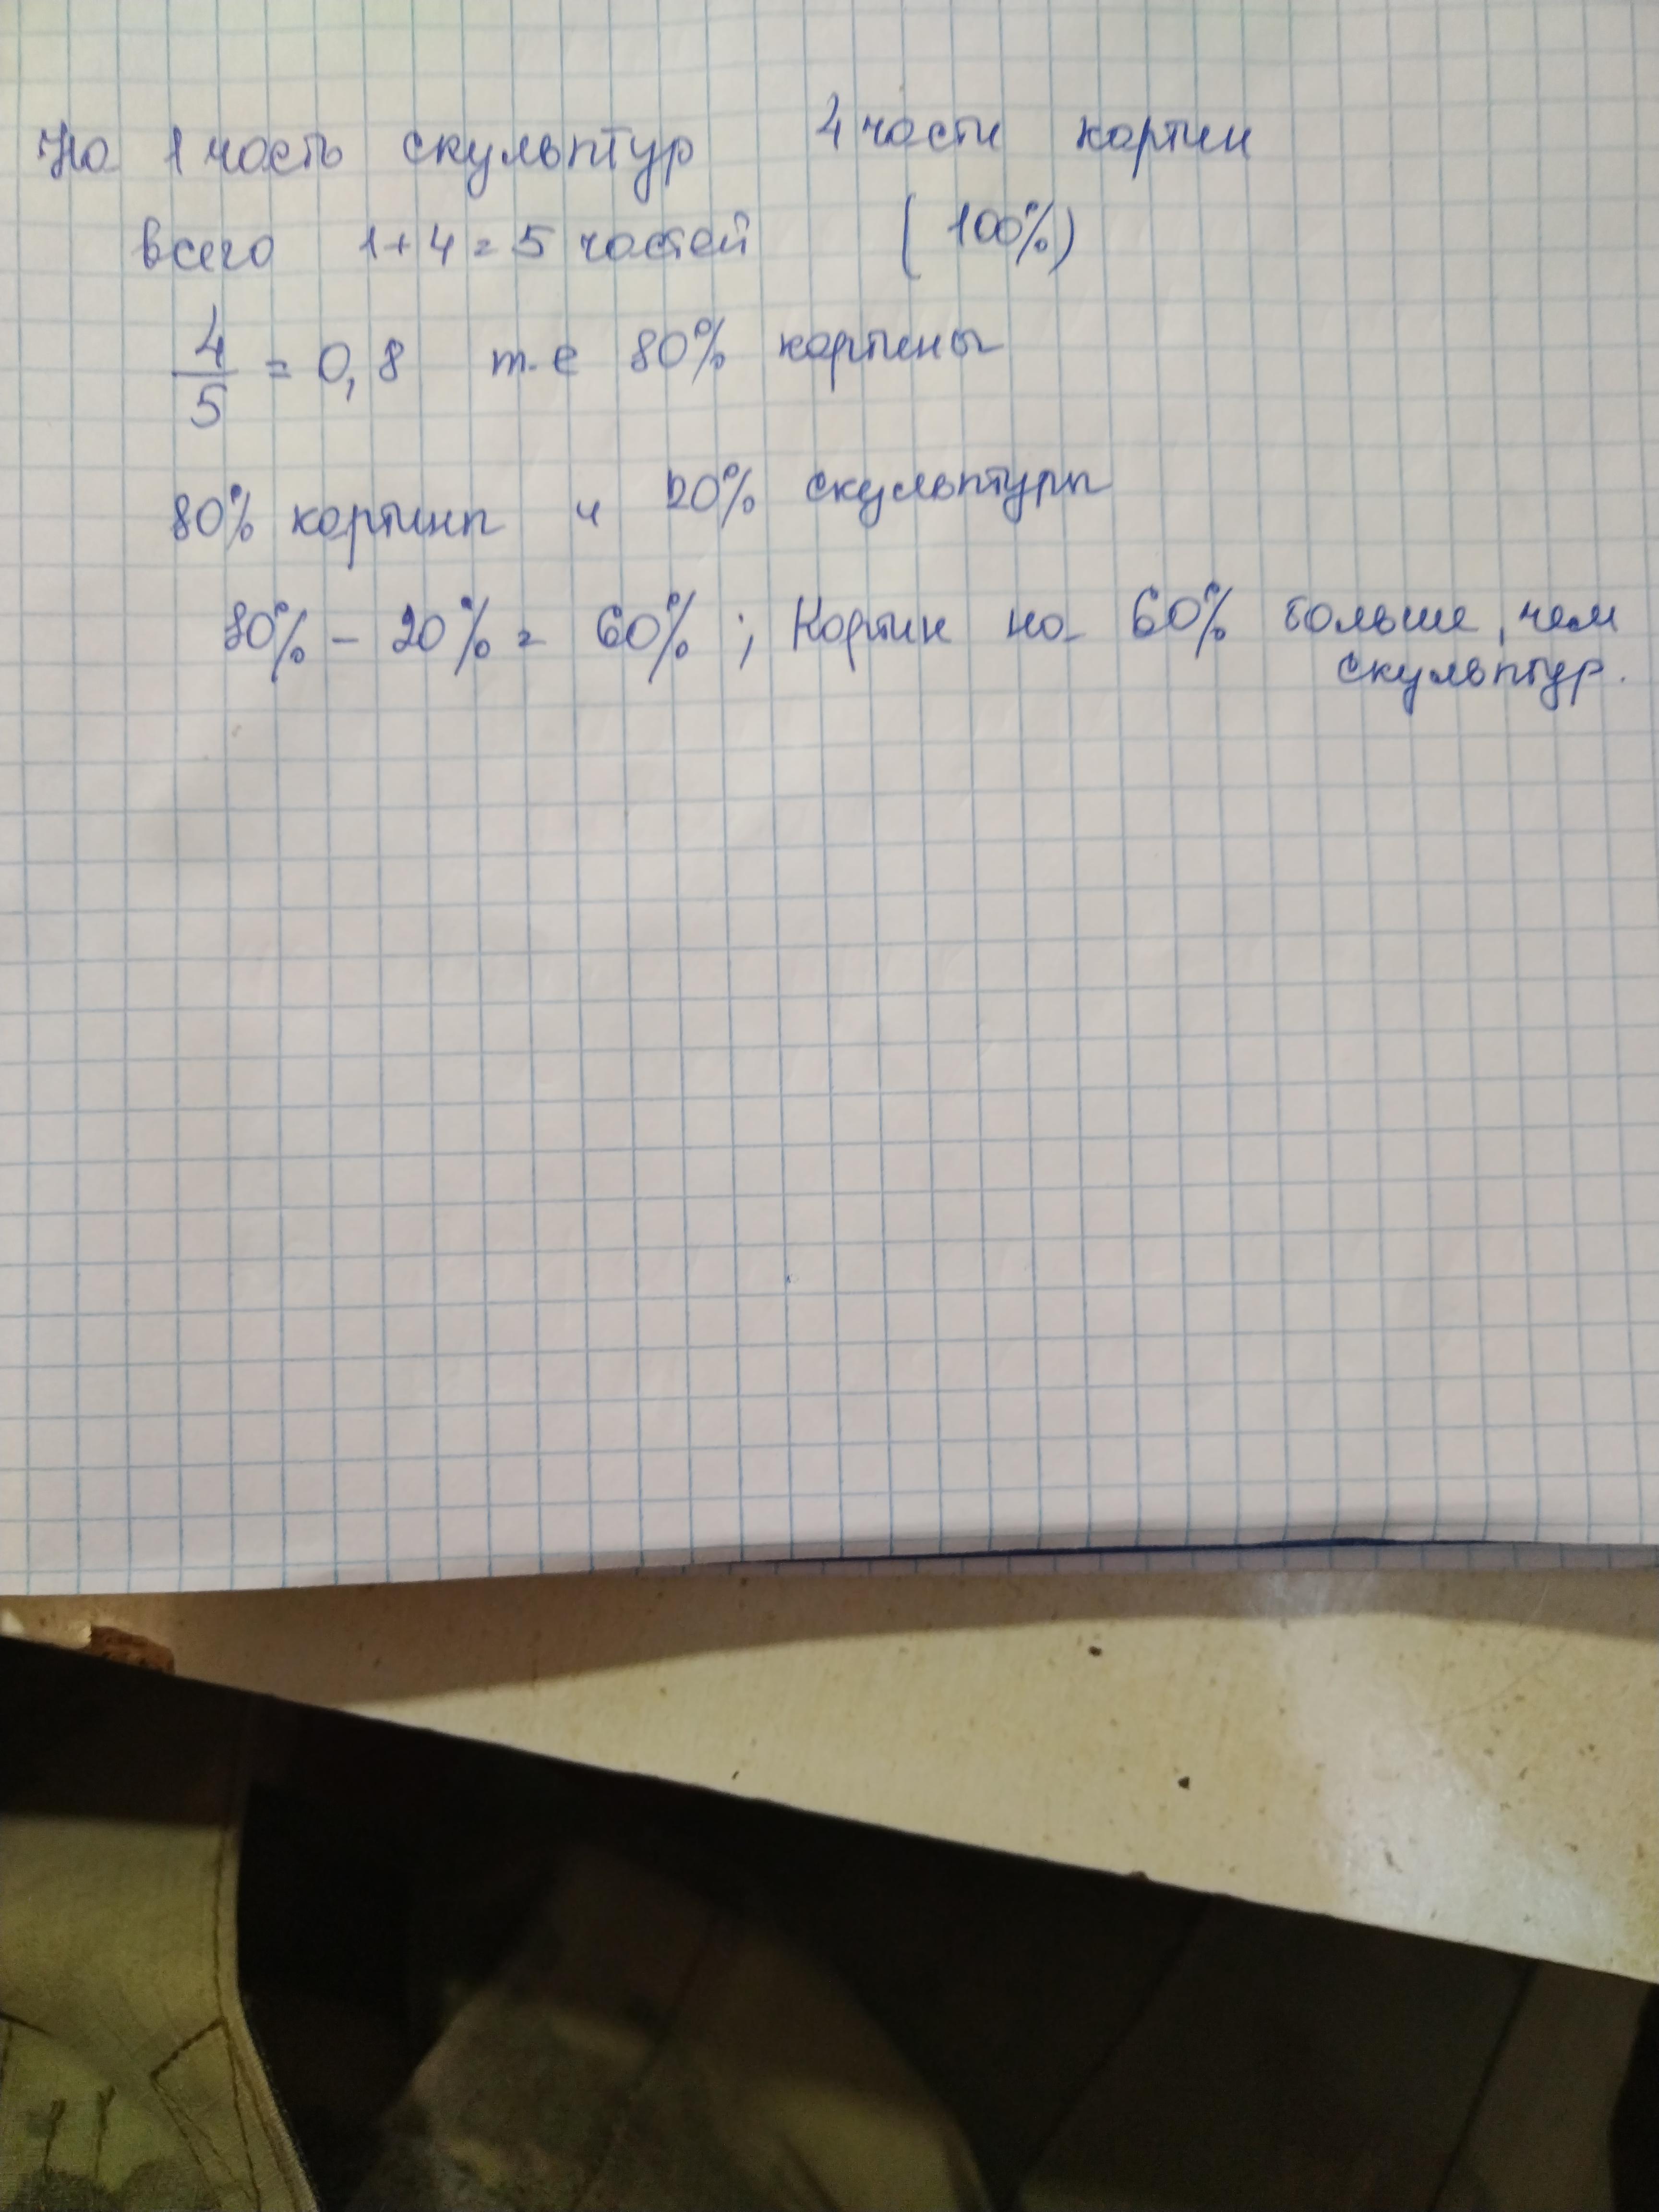 На 1 часть скульптур 4 части картин
всего 1+4=5 частей (100%)
4/5 = 0,8 т.е 80% картины
80% картины и 20% скульптуры
80% - 20% = 60% ; Картин на 60% больше, чем
скульптур.